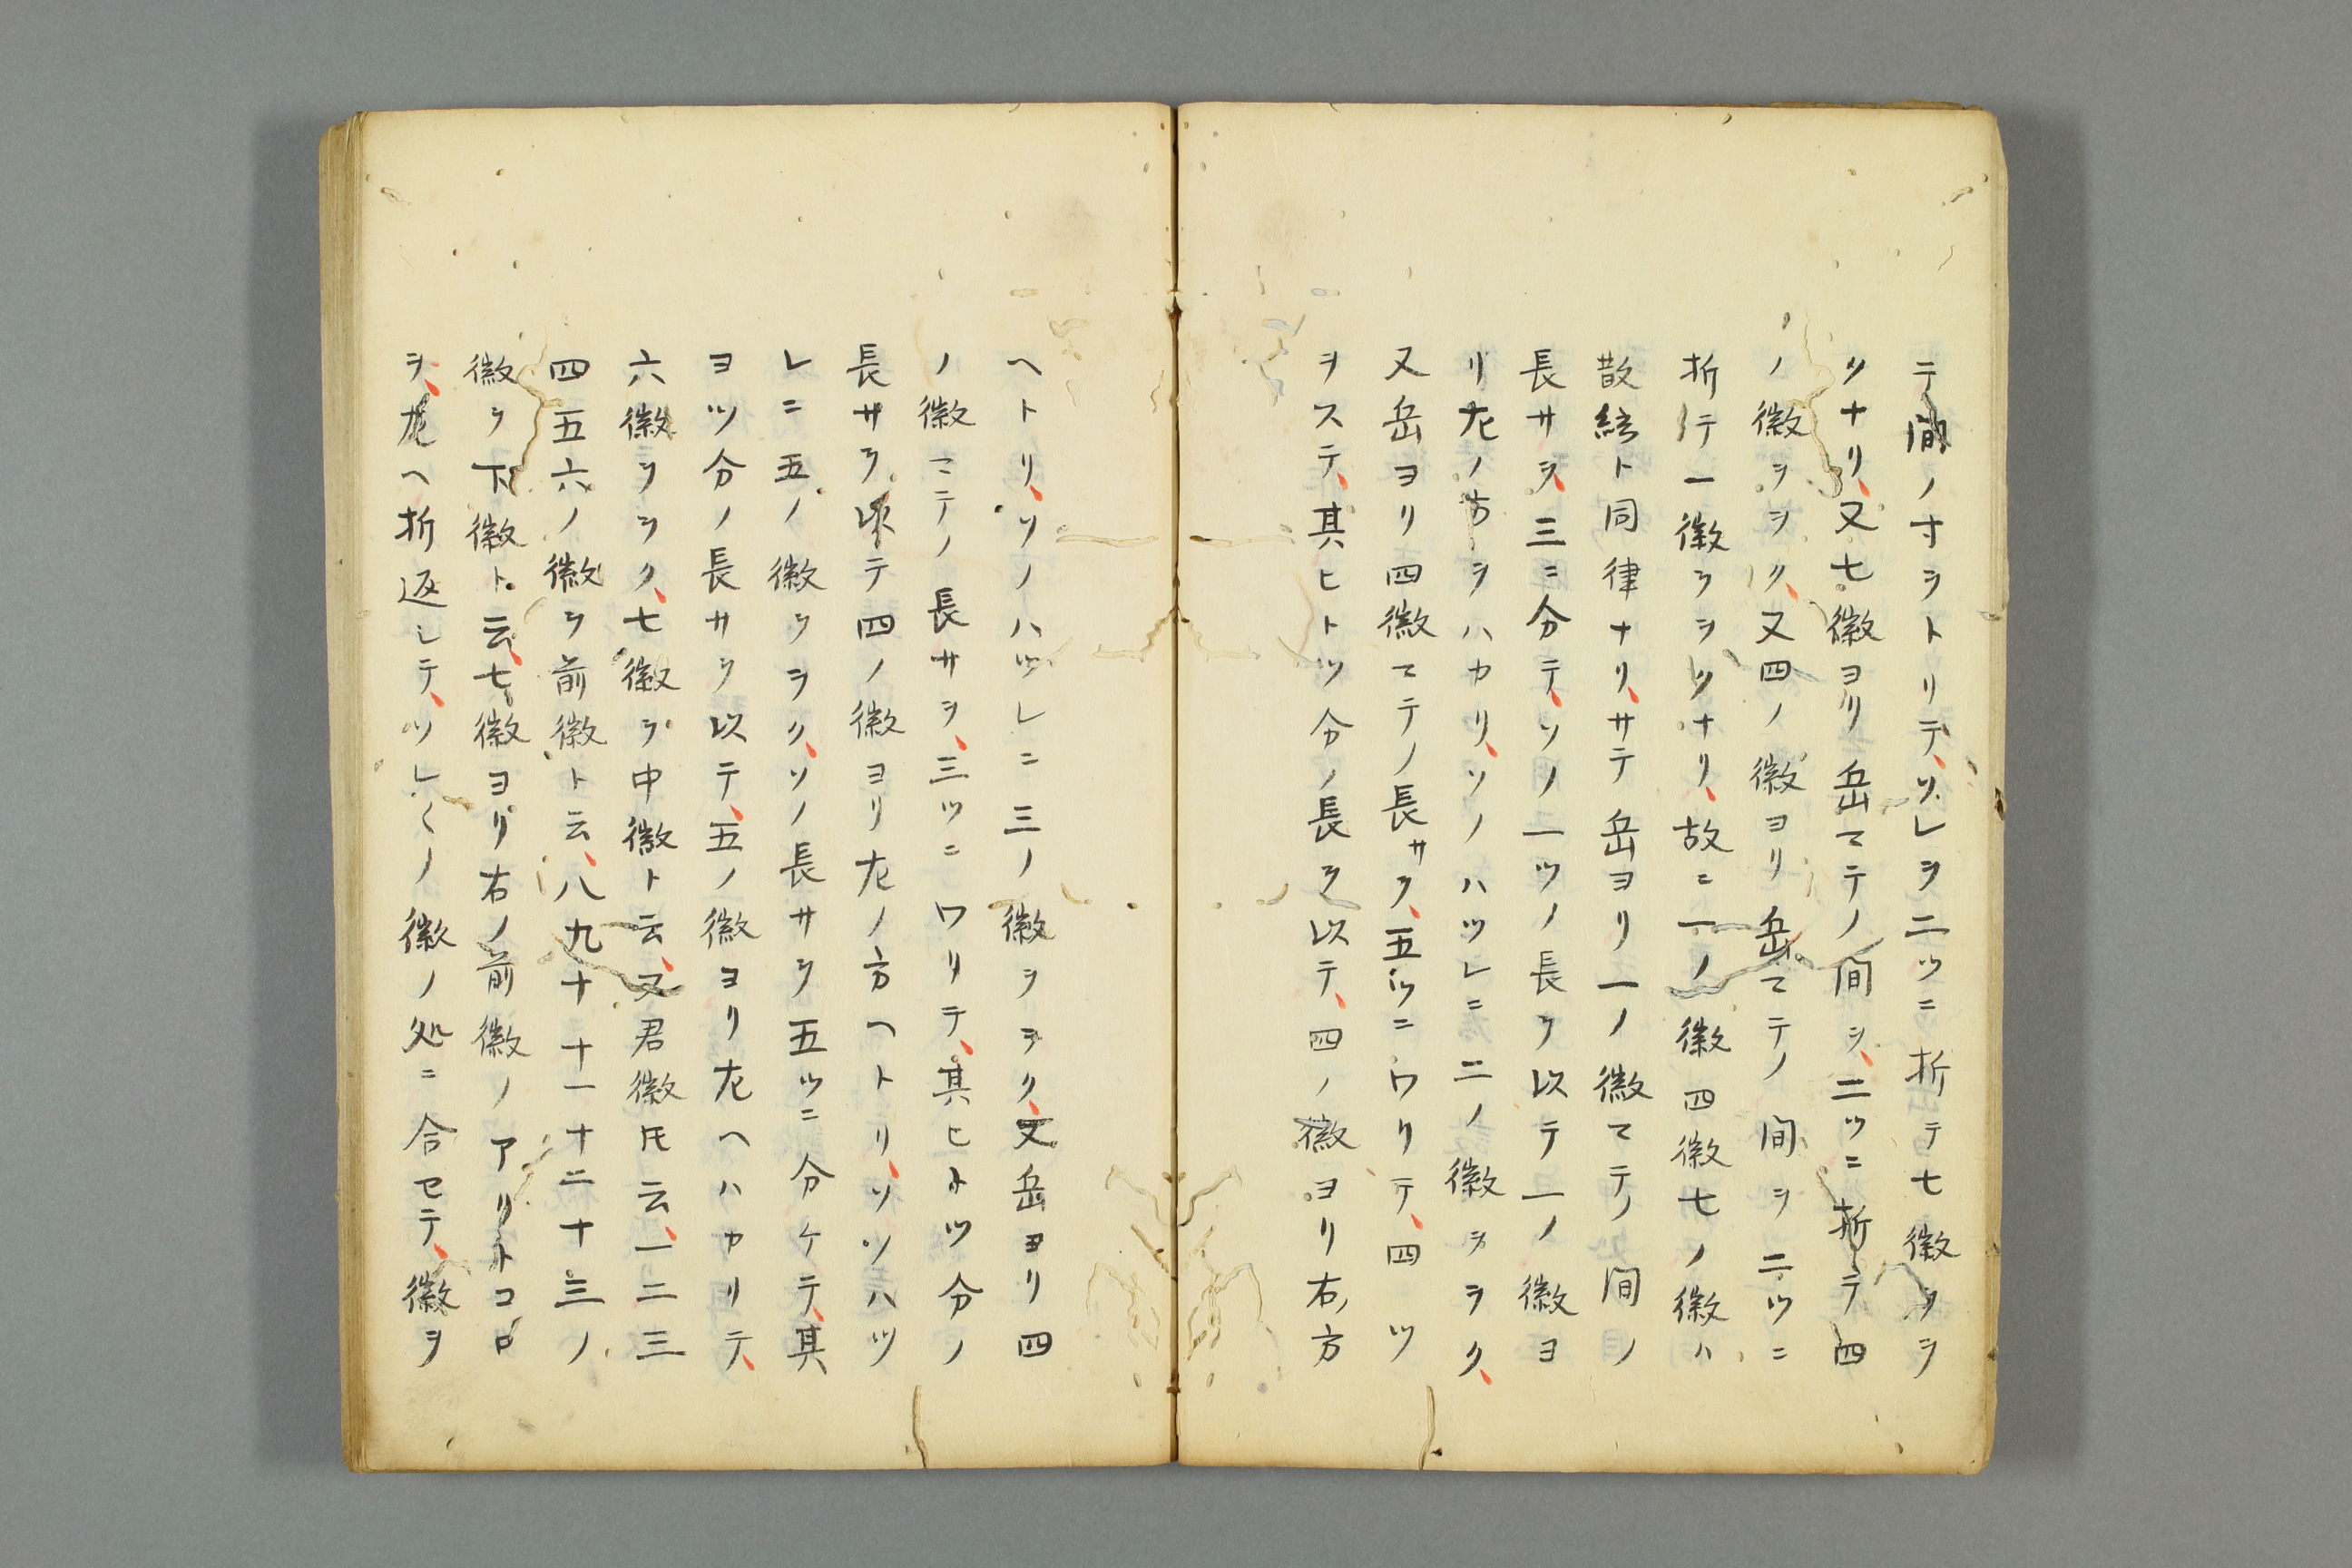 テ間ノ寸ヲトリテ、ソレヲ二ツニ折テ七徽ヲヲ
クナリ、又七徽ヨリ岳マテノ間ヲ、二ツニ折テ四
ノ徽ヲヲク、又四ノ徽ヨリ岳マテノ間ヲ二ツニ
折テ一徽ヲヲクナリ、故ニ一ノ徽四徽七ノ徽ハ
散絃ト同律ナリ、サテ岳ヨリ一ノ徽マテノ間ノ
長サヲ、三ニ分テ、ソノ一ツノ長ヲ以テ一ノ徽ヨ
リ左ノ方ヲハカリ、ソノハツレニ二ノ徽ヲヲク、
又岳ヨリ四徽マテノ長サヲ、五ツニワリテ、四ツ
ヲステ、其ヒトツ分ノ長ヲ以テ、四ノ徽ヨリ右ノ方
ヘトリ、ソノハツレニ三ノ徽ヲヲク、又岳ヨリ四
ノ徽マテノ長サヲ、三ツニワリテ、其ヒトツ分ノ
長サヲ以テ四ノ徽ヨリ左ノ方ヘトリ、ソノハツ
レニ五ノ徽ヲヲク、ソノ長サヲ五ツニ分ケテ、其
ヨツ分ノ長サヲ以テ、五ノ徽ヨリ左ヘハカリテ、
六徽ヲヲク、七徽ヲ中徽ト云、又君徽トモ云、一二三
四五六ノ徽ヲ前徽ト云、八九十十一十二十三ノ
徽ヲ下徽ト云、七徽ヨリ右ノ前徽ノアリトコロ
ヲ、尾ヘ折返シテ、ソレ〱ノ徽ノ処ニ合セテ、徽ヲ